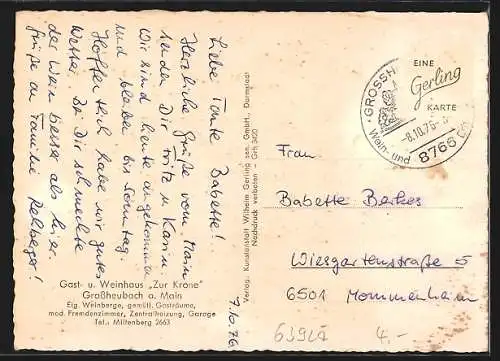 Liebe Tante Babette!
Herzliche Grüße vom Main
senden Dir Fritz u. Karin.
Wir sind heute angekommen
und bleiben bis Sonntag.
Hoffentlich habe wir gutes
Wetter. Da Dir schmeckte
der Wein besser als hier.
Grüße an Familie
7.10.76
Gast- u. Weinhaus „Zur Krone"
Großheubach a. Main
Eig. Weinberge, gemütl. Gasträume,
mod. Fremdenzimmer, Zentralheizung, Garage
Tel.: Miltenberg 2663
Verlag: Kunstanstalt Wilhelm Gerling sen. GmbH., Darmstadt
Nachdruck verboten - Grh 3400
EINE
Gerling
KARTE
GROSSH
8.10.76
Wein- und
8766
Frau
Babette Berkes
Wiesgartenstraße 5
6501 Mommenheim
4.-